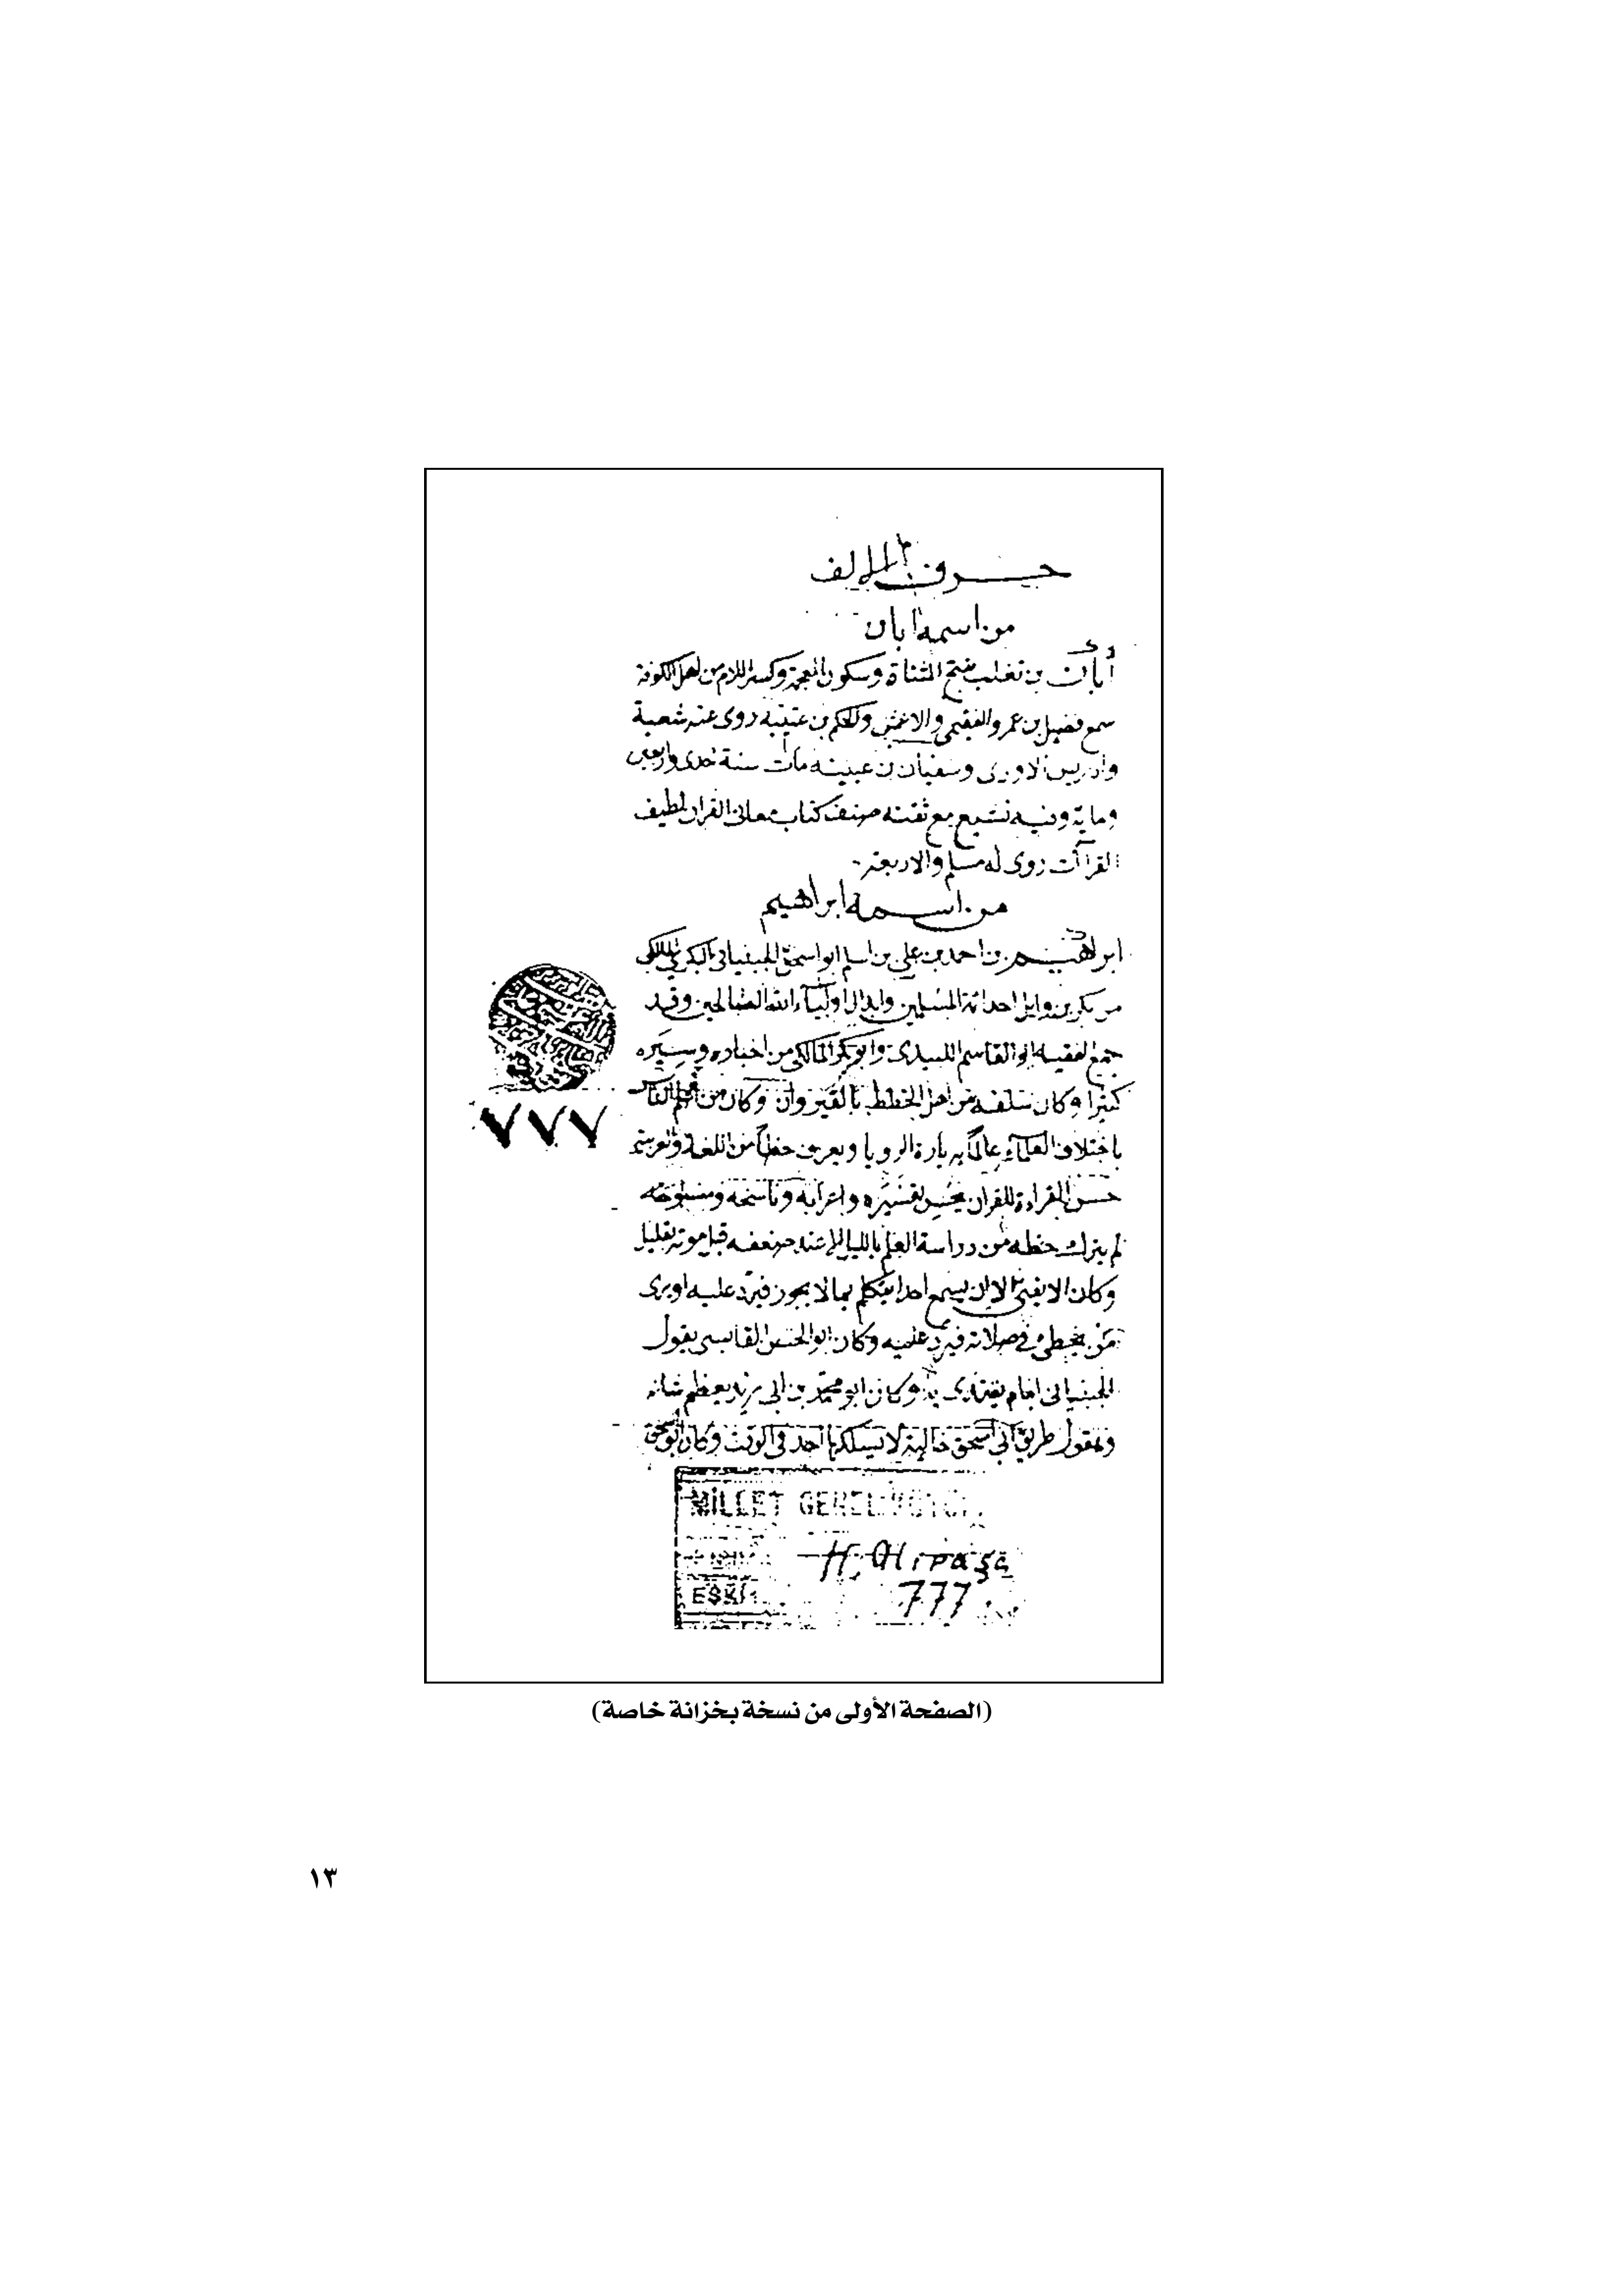 حرف الالف
من اسمه ابان
أبان بن تغلب بفتح المثناة وسكون المعجمة وكسر اللام من اهل الكوفة
سمع فضيل بن عمرو الفقيمى والاعمش والحكم بن عتيبة روى عنه شعبة
وادريس الاودى وسفيان بن عيينه مات سنة احدى واربعين
وماية وفيه تشيع مع ثقته صنف كتاب معانى القران لطيف
القراآت روى له مسلم والاربعة
من اسمه ابراهيم
ابراهيم بن احمد بن على بن اسلم ابو اسحق الجبنيانى البكرى المالكى
من بكر بن وايل احد ائمة المسلمين وابدال اولياء الله الصالحين وقد
جمع الفقيه ابو القاسم اللبيدى وابو بكر المالكى من اخباره وسيره
كثيرا وكان سلفه من اهل الخطط بالقيروان وكان من اعلم الناس
باختلاف العلماء عالما بعبارة الرويا ويعرف حظا من اللغة والعربية
حسن القراءة للقران يحسن تفسيره واعرابه وناسخه ومنسوخه
لم يترك حظه من دراسة العلم بالليل الا عند ضعفه قبل موته بقليل
وكان لا يفتى الا ان يسمع احدا يتكلم بما لا يجوز فيرد عليه او يرى
من يخطى فى صلاته فيرد عليه وكان ابو الحسن القابسى يقول
الجبنيانى امام يقتدى به وكان ابو محمد بن ابى زيد يعظم شانه
ويقول طريق ابى اسحق خالية لا يسلكها احد فى الوقت وكان ابو اسحق
٧٧٧
MİLLET GENEL
H. Ali paşa
ESKİ
777
(الصفحة الأولى من نسخة بخزانة خاصة)
١٣